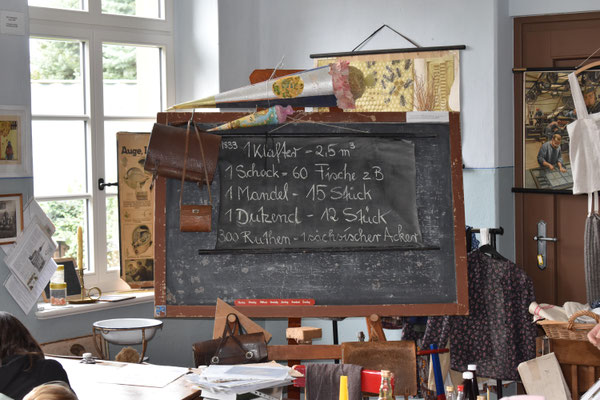 Auge,
1833
1 Klafter - 2,5 m³
1 Schock - 60 Fische z B
1 Mandel - 15 Stück
1 Dutzend - 12 Stück
300 Ruthen - 1 sächsischer Acker